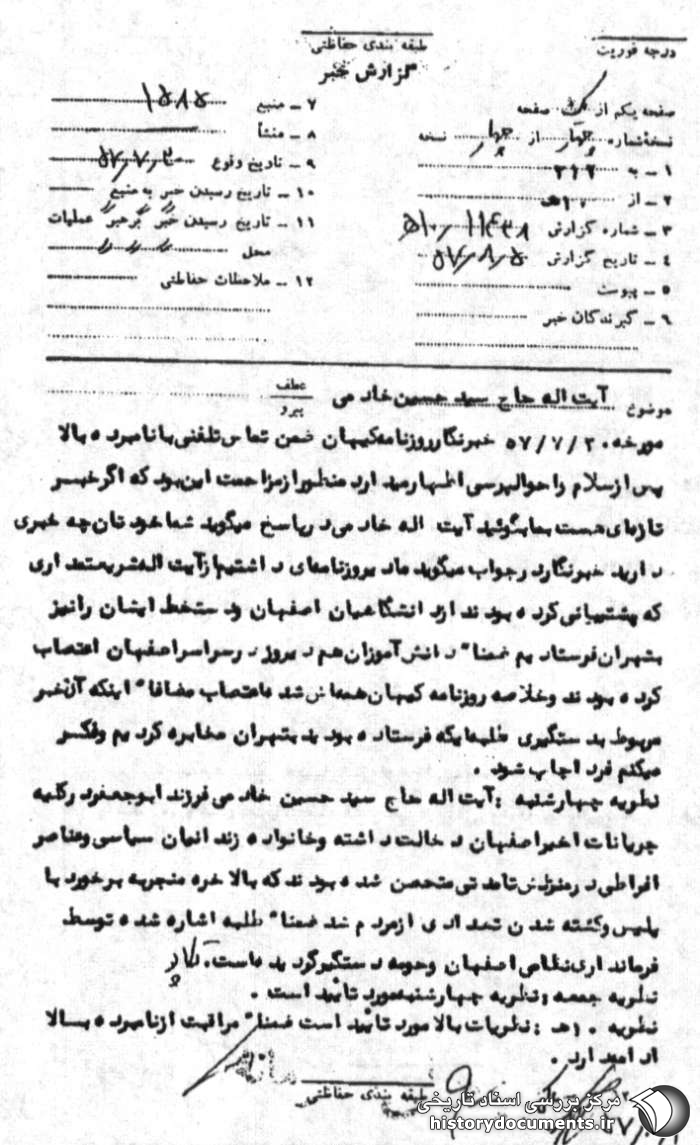 طبقه بندی حفاظتی
درجه فوریت
گزارش خبر
صفحه یکم از یک صفحه
نسخه شماره چهار از چهار نسخه
۱ ـ به ۳۱۲
۲ ـ از ۱۰هـ
۳ ـ شماره گزارش
۴ ـ تاریخ گزارش ۵۷/۸/۵
۵ ـ پیوست
۶ ـ گیرندگان خبر
۷ ـ منبع ۱۵۸۵
۸ ـ منشأ
۹ ـ تاریخ وقوع ۵۷/۷/۳۰
۱۰ ـ تاریخ رسیدن خبر به منبع
۱۱ ـ تاریخ رسیدن خبر به رهبر عملیات
محل
۱۲ ـ ملاحظات حفاظتی
موضوع آیت اله حاج سید حسین خادمی
عطف
پیرو
مورخه ۵۷/۷/۲۰ خبرنگار روزنامه کیهان ضمن تماس تلفنی با نامبرده بالا
پس از سلام و احوالپرسی اظهار میدارد منظور از مزاحمت این بود که اگر خبر
تازه‌ای هست بما بگوئید آیت اله خادمی در پاسخ میگوید شما خودتان چه خبری
دارید خبرنگار در جواب میگوید ما دیروز نامه‌ای داشتیم از آیت اله شریعتمداری
که پشتیبانی کرده بودند از دانشگاهیان اصفهان و دستخط ایشان را نیز
بتهران فرستادیم ضمنا" دانش آموزان هم دیروز در سراسر اصفهان اعتصاب
کرده بودند و خلاصه روزنامه کیهان همه‌اش شده اعتصاب مضافا" اینکه آن خبر
مربوط بدستگیری طلبه‌ایکه فرستاده بودید بتهران مخابره کردیم و فکر
میکنم فردا چاپ شود .
نظریه چهارشنبه : آیت اله حاج سید حسین خادمی فرزند ابوجعفر در کلیه
جریانات اخیر اصفهان دخالت داشته و خانواده زندانیان سیاسی و عناصر
افراطی در منزلش تا مدتی متحصن شده بودند که بالاخره منجر به برخورد با
پلیس و کشته شدن تعدادی از مردم شد ضمنا" طلبه اشاره شده توسط
فرمانداری نظامی اصفهان و حومه دستگیر گردیده است.
نظریه جمعه : نظریه چهارشنبه مورد تائید است .
نظریه ۱۰هـ : نظریات بالا مورد تائید است ضمنا" مراقبت از نامبرده بالا
ادامه دارد .
طبقه بندی حفاظتی
مرکز بررسی اسناد تاریخی
historydocuments.ir